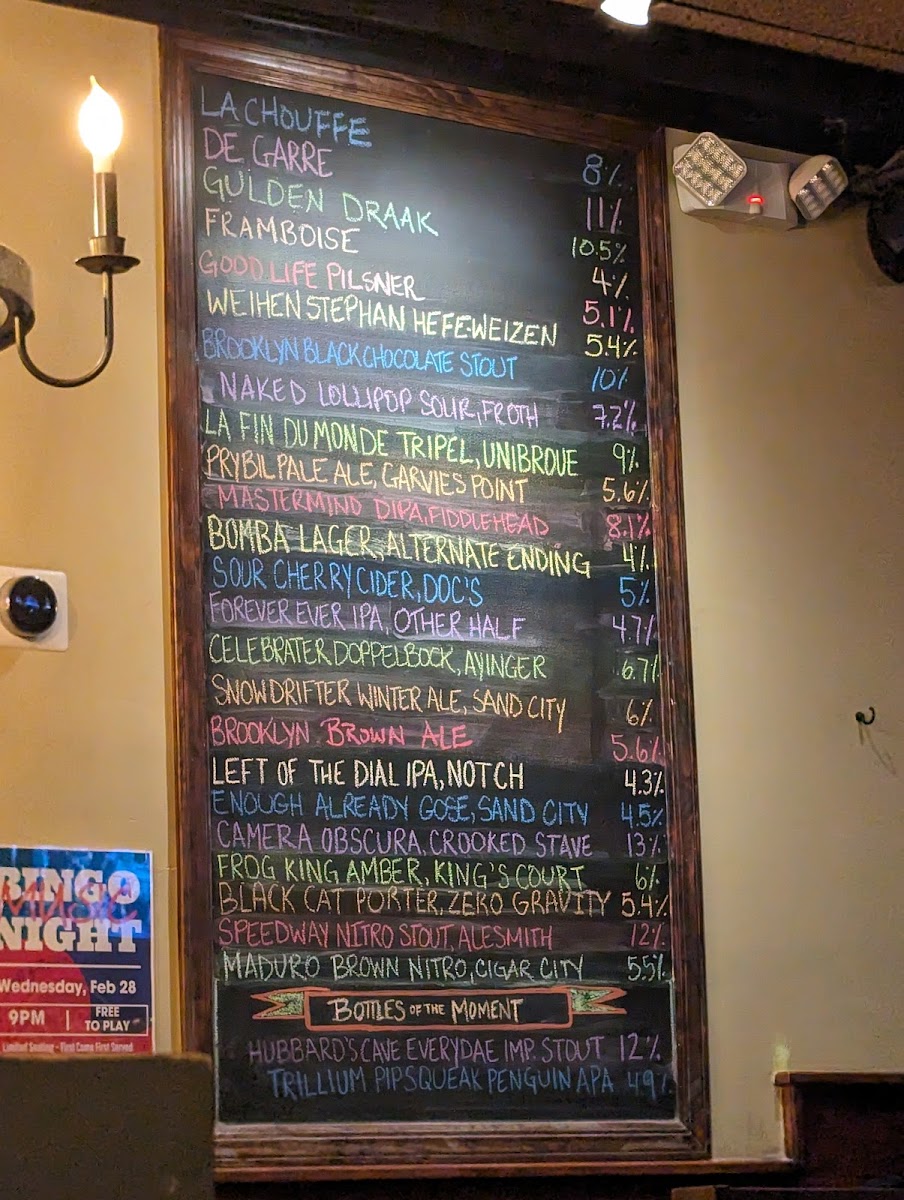 LA CHOUFFE 8%
DE GARRE 11%
GULDEN DRAAK 10.5%
FRAMBOISE 4%
GOOD LIFE PILSNER 5.1%
WEIHENSTEPHAN HEFE-WEIZEN 5.4%
BROOKLYN BLACK CHOCOLATE STOUT 10%
NAKED LOLLIPOP SOUR, FROTH 7.2%
LA FIN DU MONDE TRIPEL, UNIBROUE 9%
PRYBIL PALE ALE, GARVIES POINT 5.6%
MASTERMIND DIPA, FIDDLEHEAD 8.1%
BOMBA LAGER, ALTERNATE ENDING 4%
SOUR CHERRY CIDER, DOC'S 5%
FOREVER EVER IPA, OTHER HALF 4.7%
CELEBRATER DOPPELBOCK, AYINGER 6.7%
SNOWDRIFTER WINTER ALE, SAND CITY 6%
BROOKLYN BROWN ALE 5.6%
LEFT OF THE DIAL IPA, NOTCH 4.3%
ENOUGH ALREADY GOSE, SAND CITY 4.5%
CAMERA OBSCURA, CROOKED STAVE 13%
FROG KING AMBER, KING'S COURT 6%
BLACK CAT PORTER, ZERO GRAVITY 5.4%
SPEEDWAY NITRO STOUT, ALESMITH 12%
MADURO BROWN NITRO, CIGAR CITY 5.5%
BOTTLES OF THE MOMENT
HUBBARD'S CAVE EVERYDAE IMP. STOUT 12%
TRILLIUM PIPSQUEAK PENGUIN APA 4.9%
BINGO
MUSIC
NIGHT
Wednesday, Feb 28
9PM | FREE TO PLAY
Limited Seating - First Come First Served